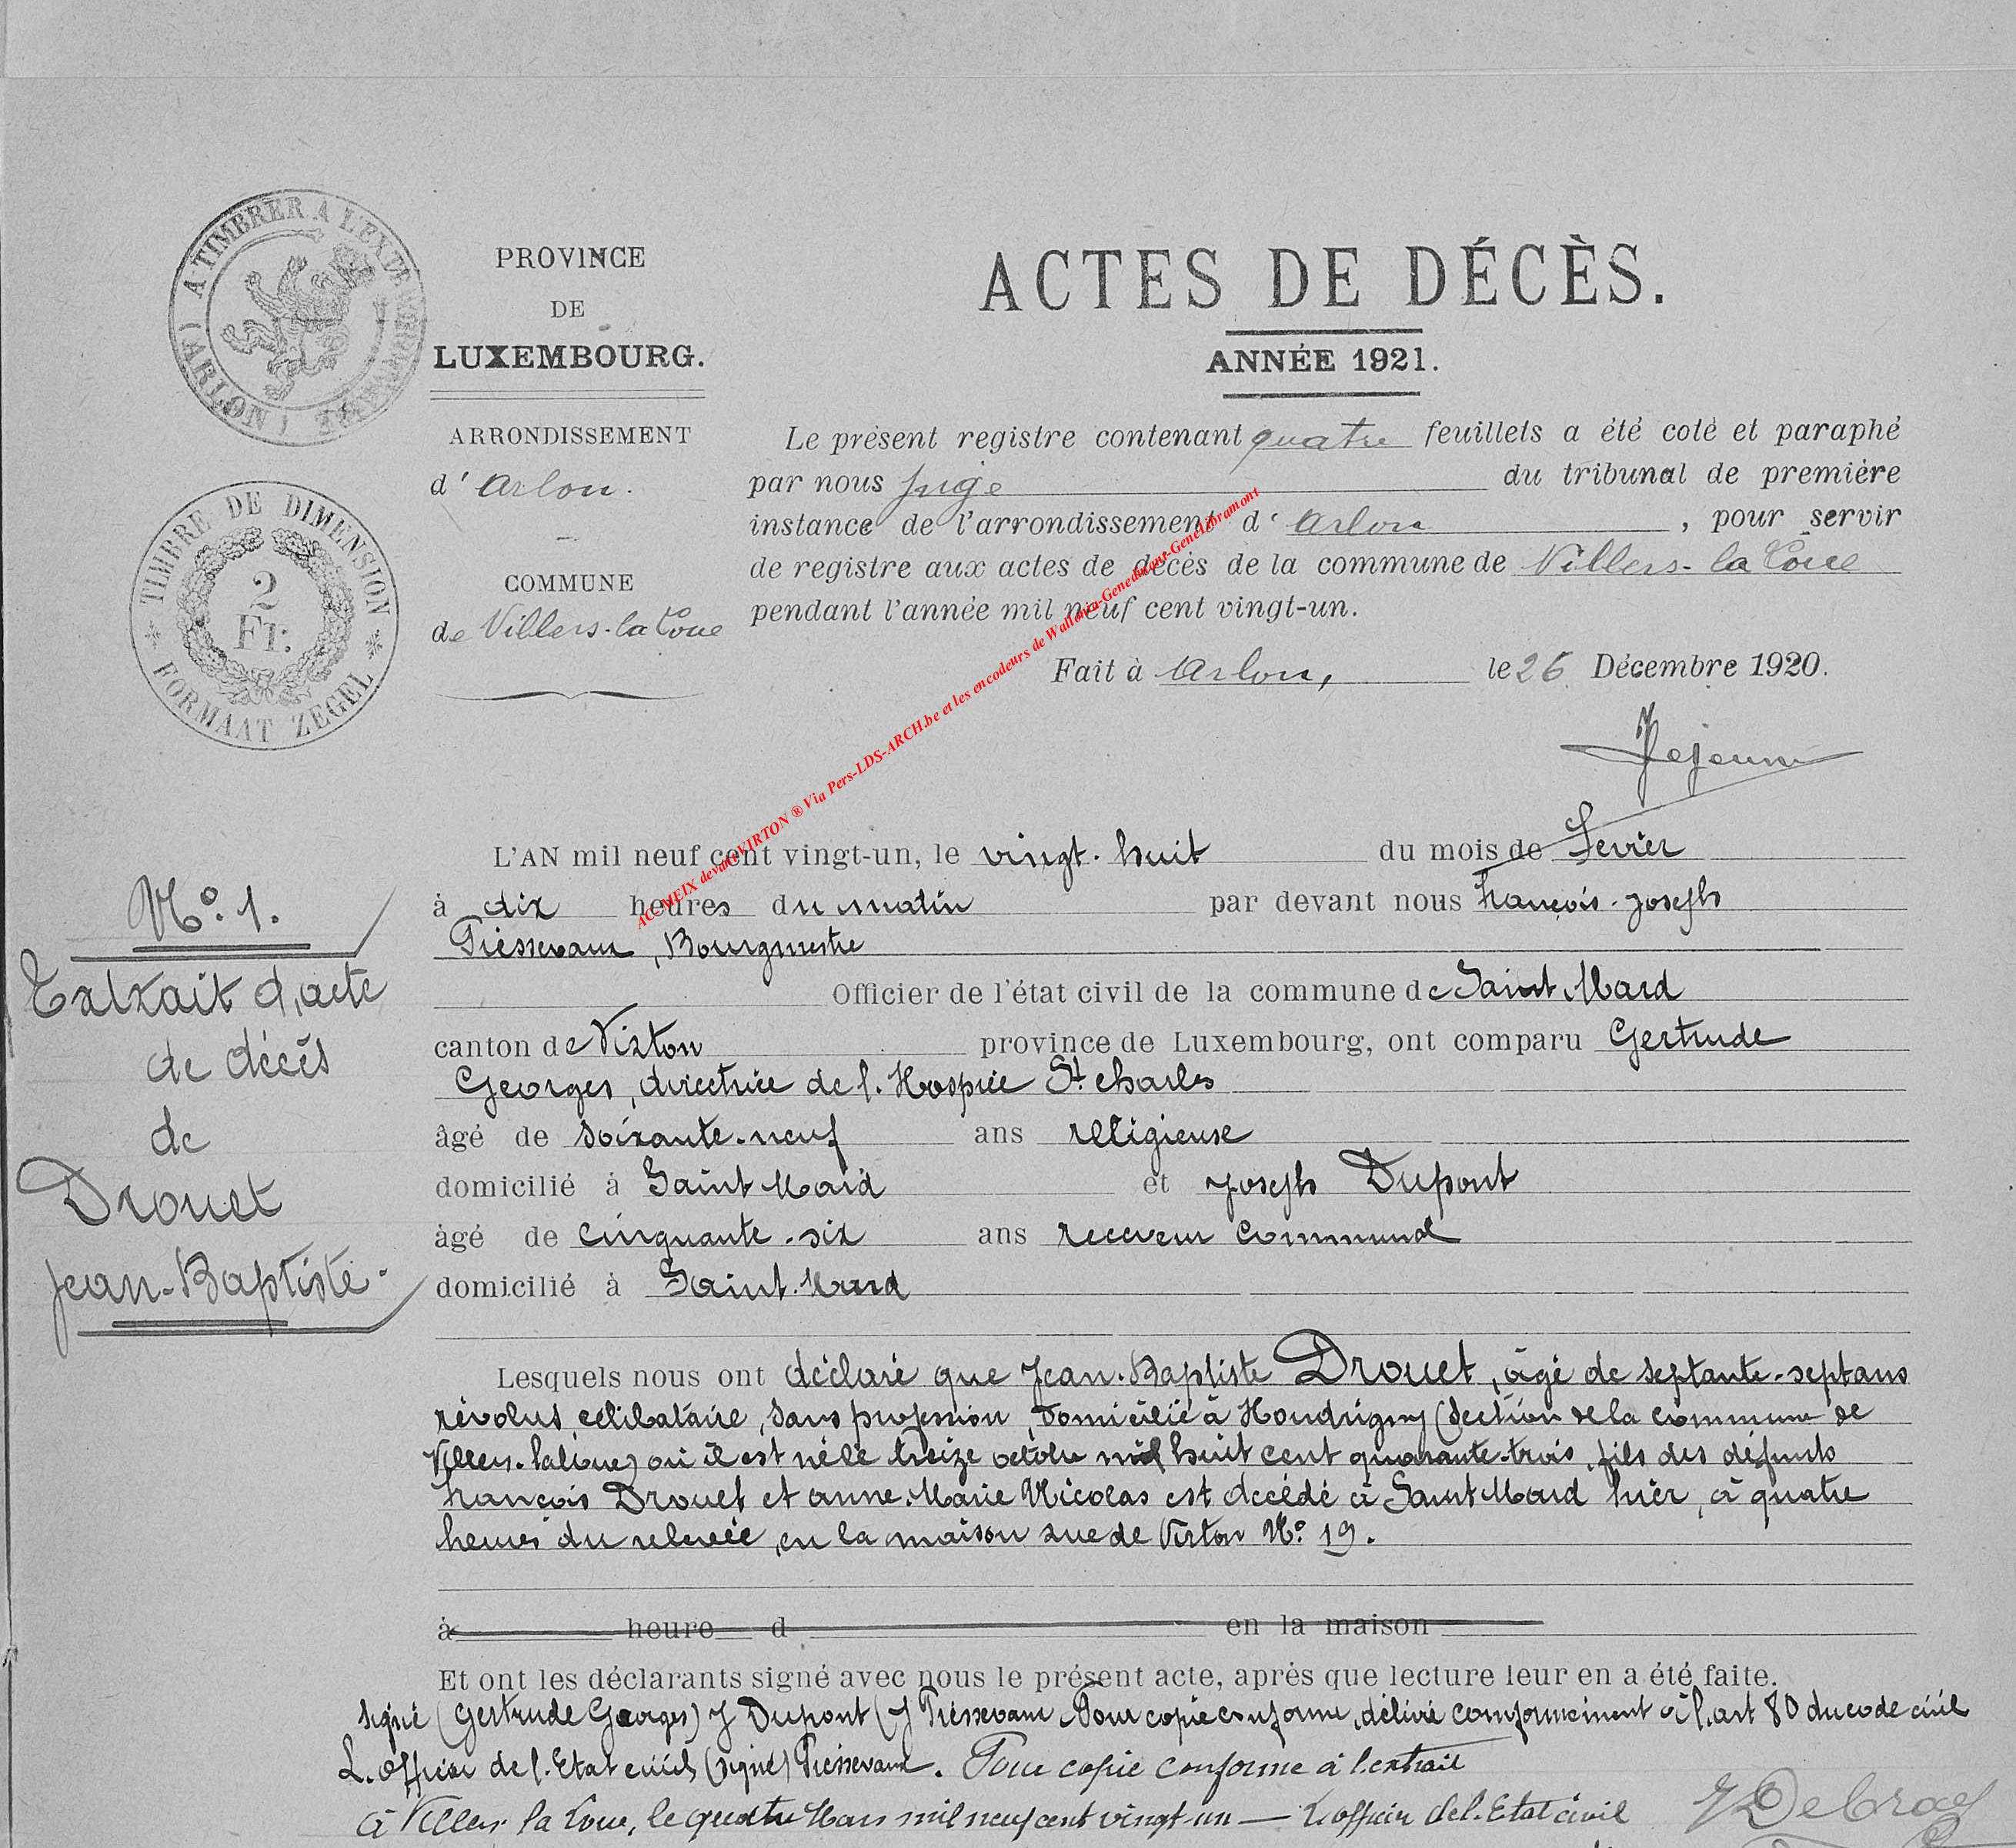 A TIMBRER A L'EXTRAORDINAIRE (ARLON)
TIMBRE DE DIMENSION
2
Fr.
FORMAAT ZEGEL
PROVINCE
DE
LUXEMBOURG.
ARRONDISSEMENT
d' Arlon.
COMMUNE
de Villers-la Loue
ACTES DE DÉCÈS.
ANNÉE 1921.
Le présent registre contenant quatre feuillets a été coté et paraphé
par nous juge du tribunal de première
instance de l'arrondissement d' Arlon, pour servir
de registre aux actes de décès de la commune de Villers-la Loue
pendant l'année mil neuf cent vingt-un.
Fait à Arlon, le 26 Décembre 1920.
AC-MEIX devant VIRTON ® Via Pers-LDS-ARCH.be et les encodeurs de Wallonia-Genedinant-GeneLibramont
N° 1.
Extrait d'acte
de décès
de
Drouet
Jean-Baptiste.
L'AN mil neuf cent vingt-un, le vingt-huit du mois de Fevrier
à dix heures du matin par devant nous François-Joseph
Bourgmestre
Officier de l'état civil de la commune de Saint Mard
canton de Virton province de Luxembourg, ont comparu Gertrude
Georges, directrice de l'Hospice St Charles
âgé de soixante-neuf ans religieuse
domicilié à Saint Mard et Joseph Dupont
âgé de cinquante-six ans receveur communal
domicilié à Saint-Mard
Lesquels nous ont déclaré que Jean-Baptiste Drouet, âgé de septante-sept ans
révolus, célibataire, sans profession, domicilié à Houdrigny (Section de la commune de
Villers-la loue) où il est né le treize octobre mil huit cent quarante-trois, fils des défunts
François Drouet et Anne-Marie Nicolas est décédé à Saint Mard hier, à quatre
heures du relevée, en la maison rue de Virton N° 19.
à heure d en la maison
Et ont les déclarants signé avec nous le présent acte, après que lecture leur en a été faite.
signé (Gertrude Georges) J Dupont (J Pour copie conforme, délivré conformément à l'art 80 du code civil
L'officier de l'Etat civil, (signé) Pour copie conforme à l'extrait
à Villers-la Loue, le quatre Mars mil neuf cent vingt-un — L'officier de l'Etat civil